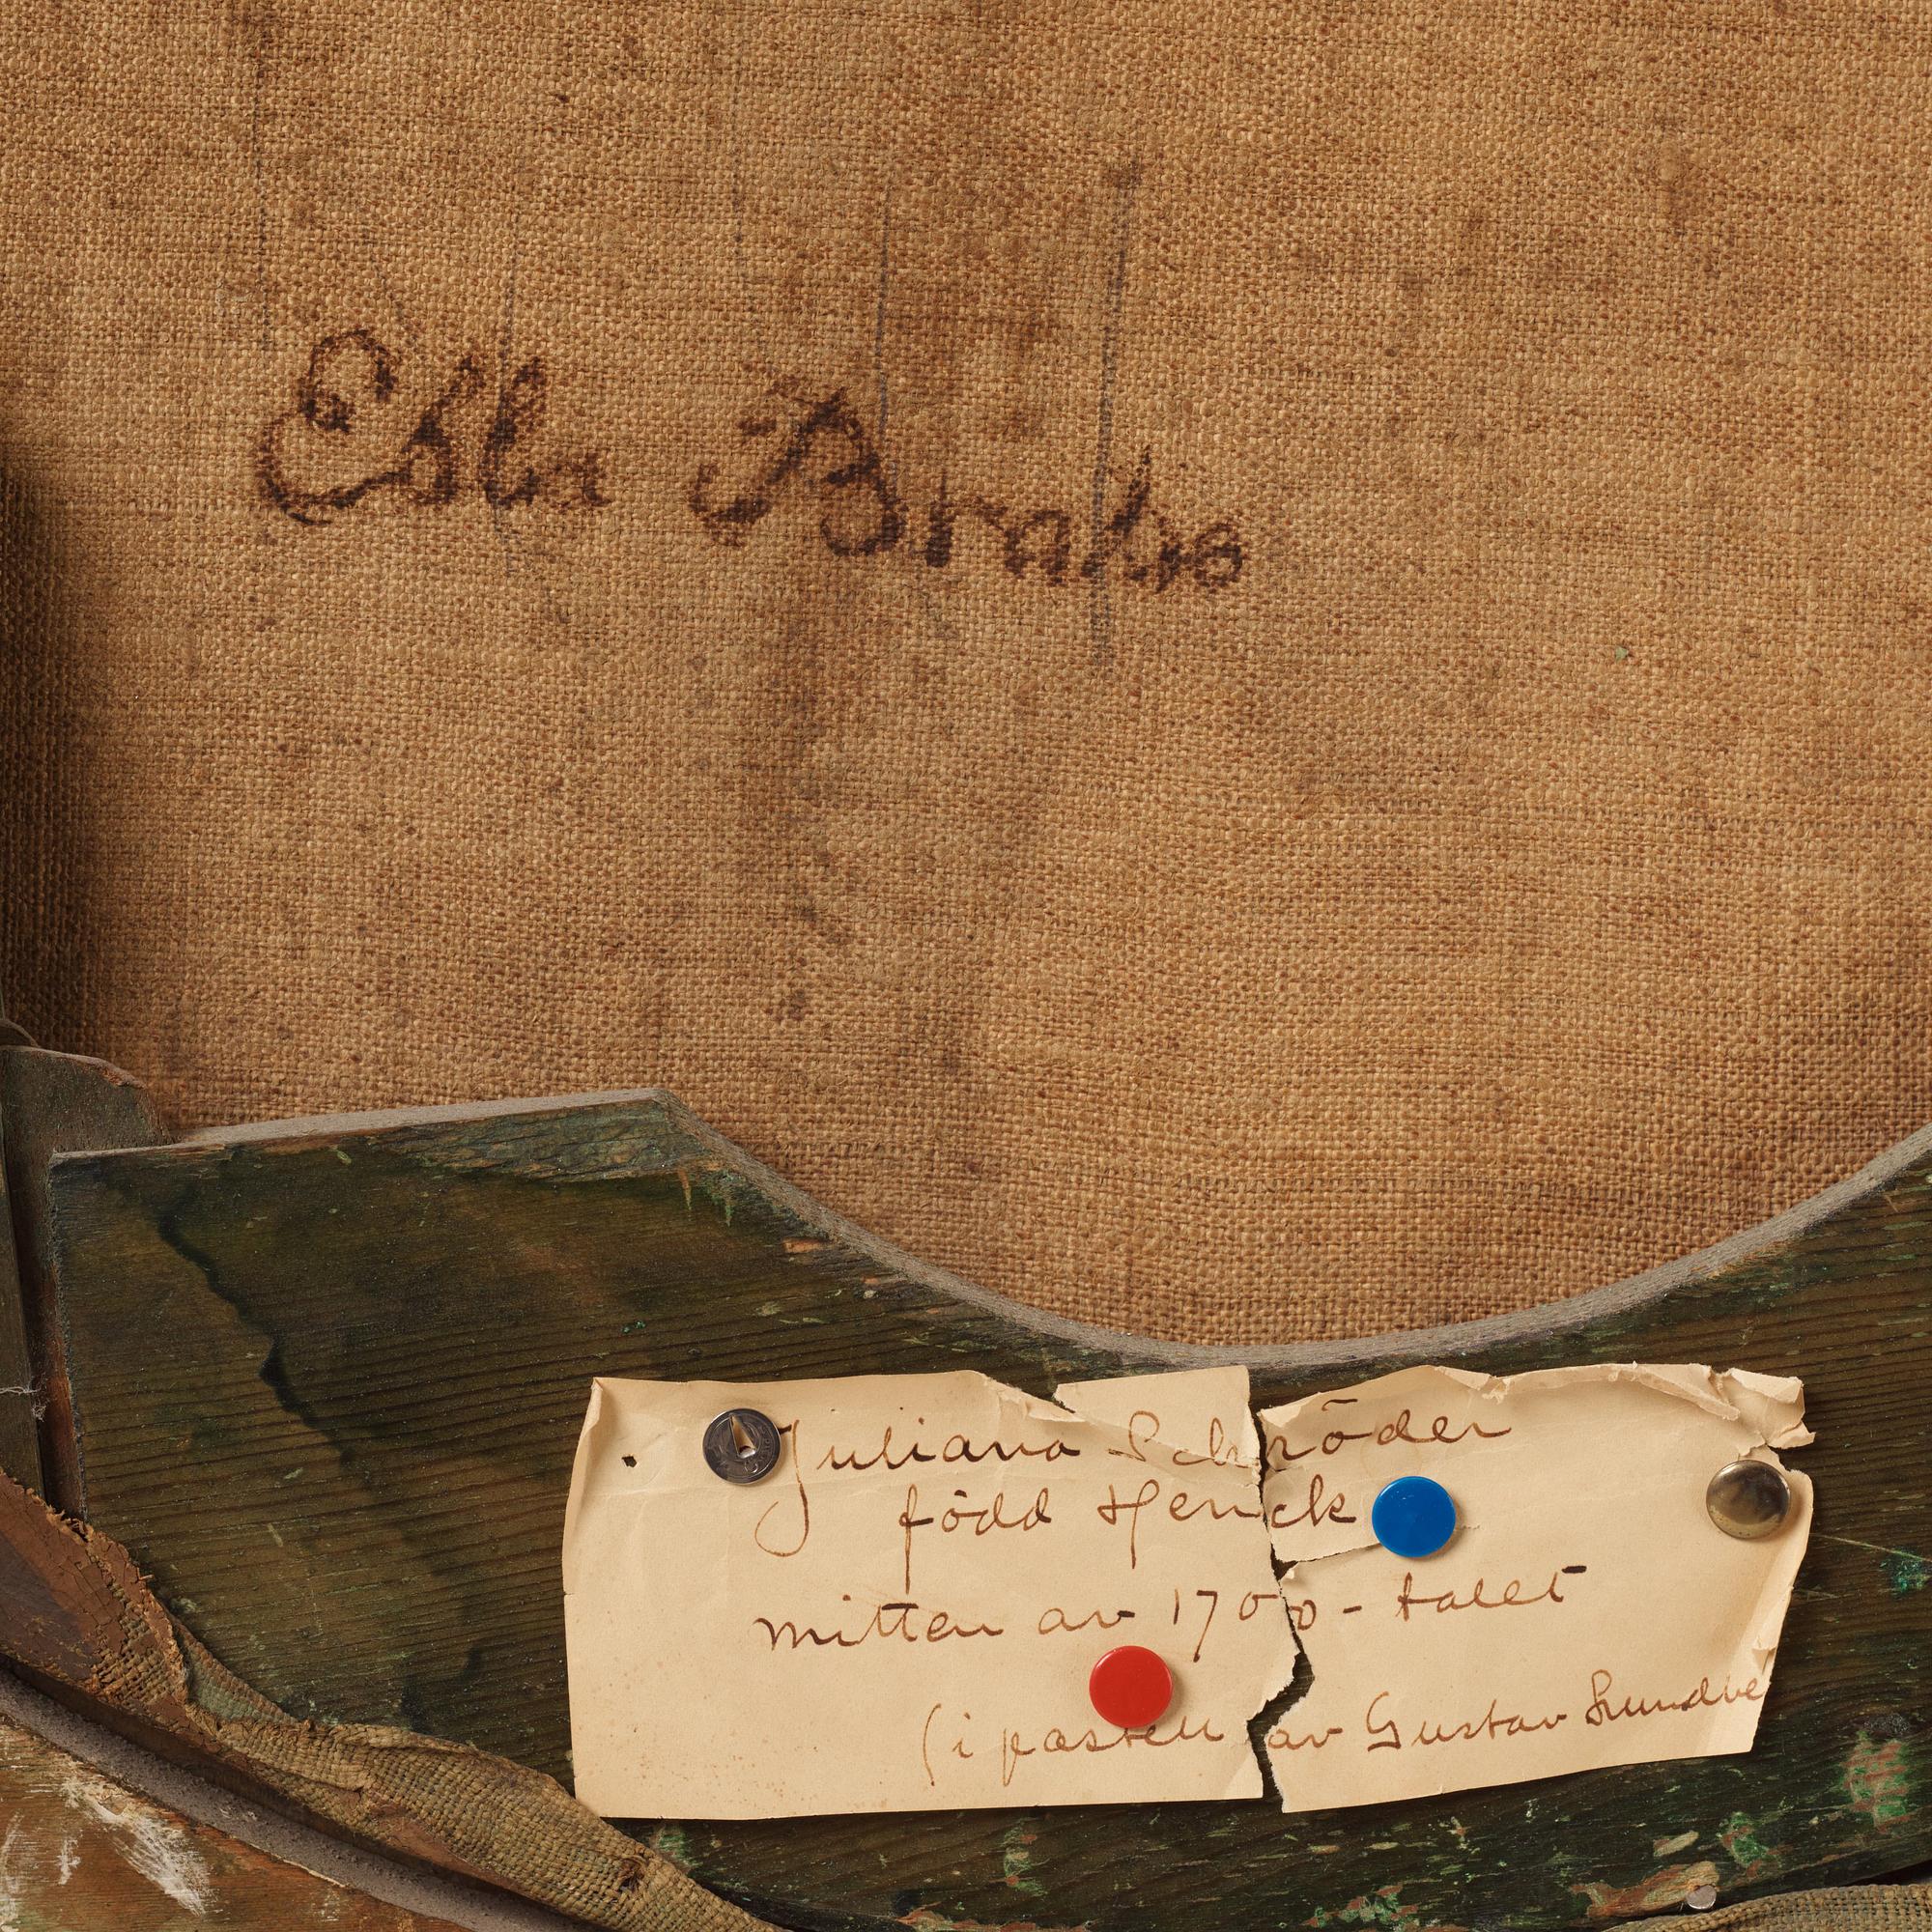 Ebba Brahe
Juliana Schröder
född Henck
mitten av 1700-talet
(i pastell av Gustav Lundbe